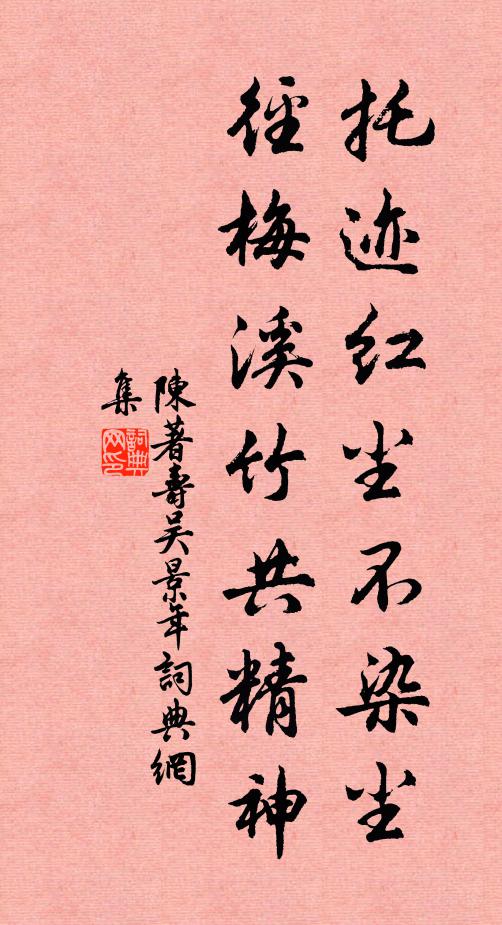 托迹红尘不染尘
径梅溪竹共精神
陳著壽吴景年詞典網
集
詞典网印